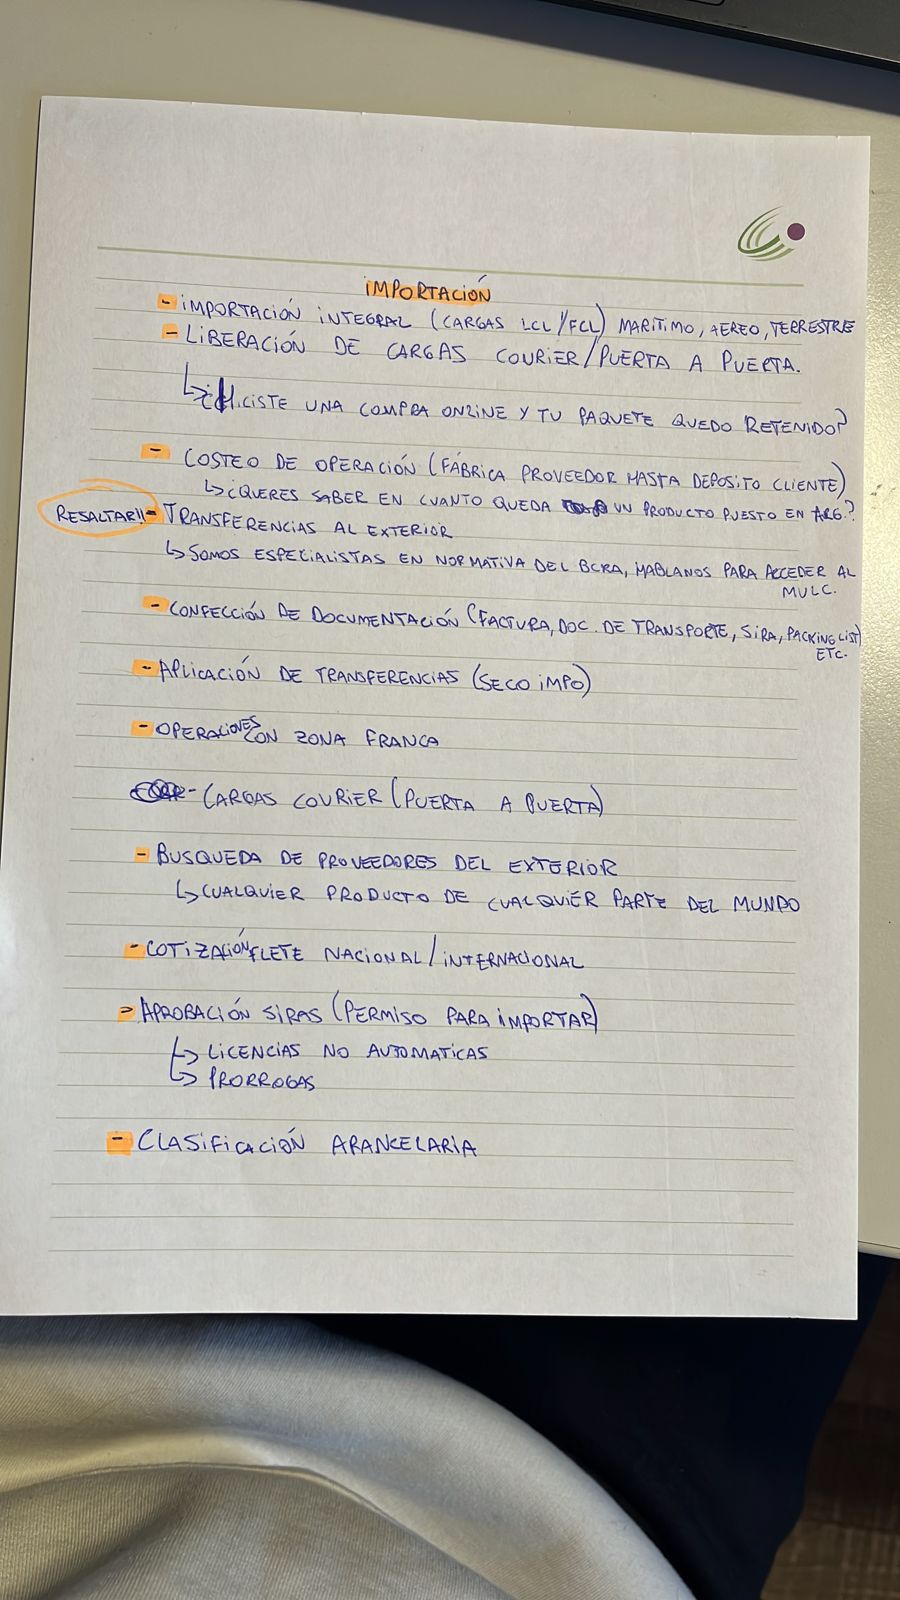 IMPORTACIÓN
- IMPORTACIÓN INTEGRAL (CARGAS LCL/FCL) MARITIMO, AEREO, TERRESTRE
- LIBERACIÓN DE CARGAS COURIER/PUERTA A PUERTA.
↳ ¿HICISTE UNA COMPRA ONLINE Y TU PAQUETE QUEDO RETENIDO?
- COSTEO DE OPERACIÓN (FÁBRICA PROVEEDOR HASTA DEPOSITO CLIENTE)
↳ ¿QUERES SABER EN CUANTO QUEDA UN PRODUCTO PUESTO EN ARG.?
RESALTAR!! - TRANSFERENCIAS AL EXTERIOR
↳ SOMOS ESPECIALISTAS EN NORMATIVA DEL BCRA, HABLANOS PARA ACCEDER AL
MULC.
- CONFECCIÓN DE DOCUMENTACIÓN (FACTURA, DOC. DE TRANSPORTE, SIRA, PACKING LIST)
ETC.
- APLICACIÓN DE TRANSFERENCIAS (SECOIMPO)
- OPERACIONES CON ZONA FRANCA
- CARGAS COURIER (PUERTA A PUERTA)
- BUSQUEDA DE PROVEEDORES DEL EXTERIOR
↳ CUALQUIER PRODUCTO DE CUALQUIER PARTE DEL MUNDO
- COTIZACIÓN FLETE NACIONAL/INTERNACIONAL
- APROBACIÓN SIRAS (PERMISO PARA IMPORTAR)
↳ LICENCIAS NO AUTOMATICAS
↳ PRORROGAS
- CLASIFICACIÓN ARANCELARIA